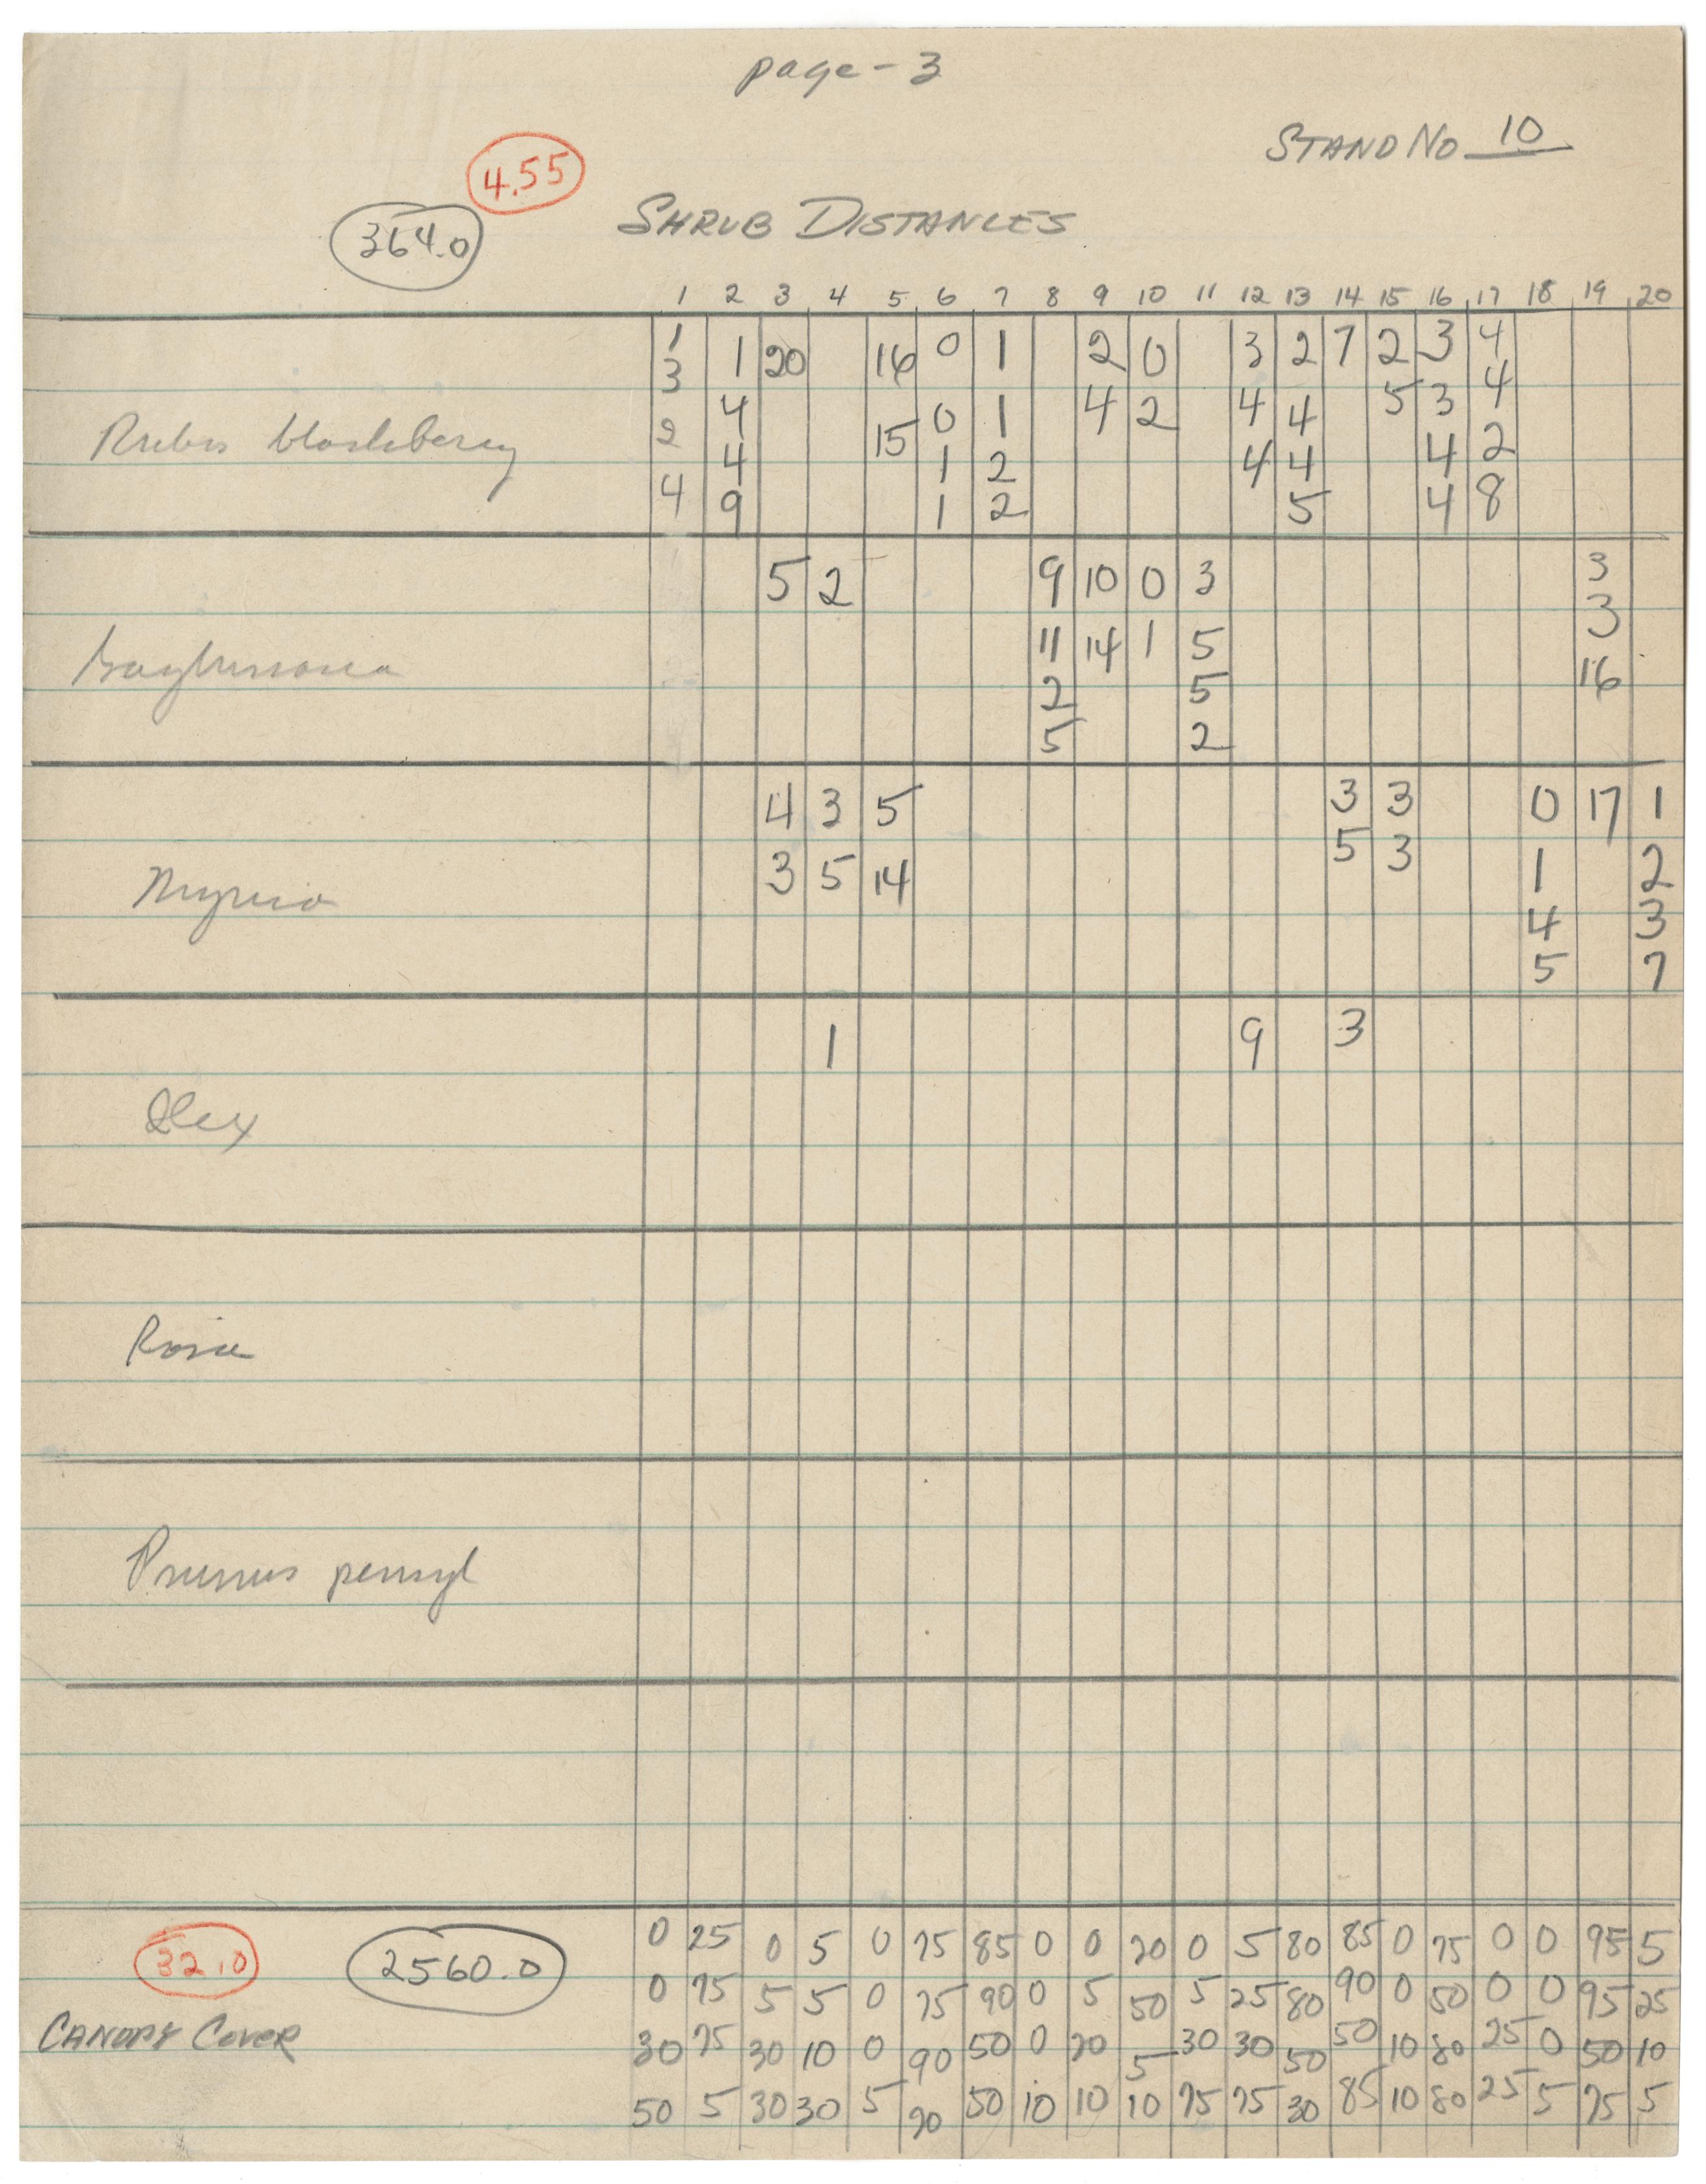 page - 3
STAND NO 10
4.55
364.0
SHRUB DISTANCES
1 2 3 4 5 6 7 8 9 10 11 12 13 14 15 16 17 18 19 20
1 1 20 16 0 1 2 0 3 2 7 2 3 4
3 4 15 0 1 4 2 4 4 5 3 4
Rubus blackberry
2 4 1 2 4 4 4 2
4 9 1 2 5 4 8
5 2 9 10 0 3 3
11 14 1 5 3
2 5 16
5 2
4 3 5 3 3 0 17 1
3 5 14 5 3 1 2
Myrica
4 3
5 7
1 9 3
Ilex
Rosa
Prunus pensyl
32.0 2560.0
CANOPY COVER
0 25 0 5 0 75 85 0 0 20 0 5 80 85 0 75 0 0 95 5
0 75 5 5 0 75 90 0 5 50 5 25 80 90 0 50 0 0 95 25
30 75 30 10 0 90 50 0 20 5 30 30 50 50 10 80 25 0 50 10
50 5 30 30 5 20 50 10 10 10 75 75 30 85 10 80 25 5 75 5